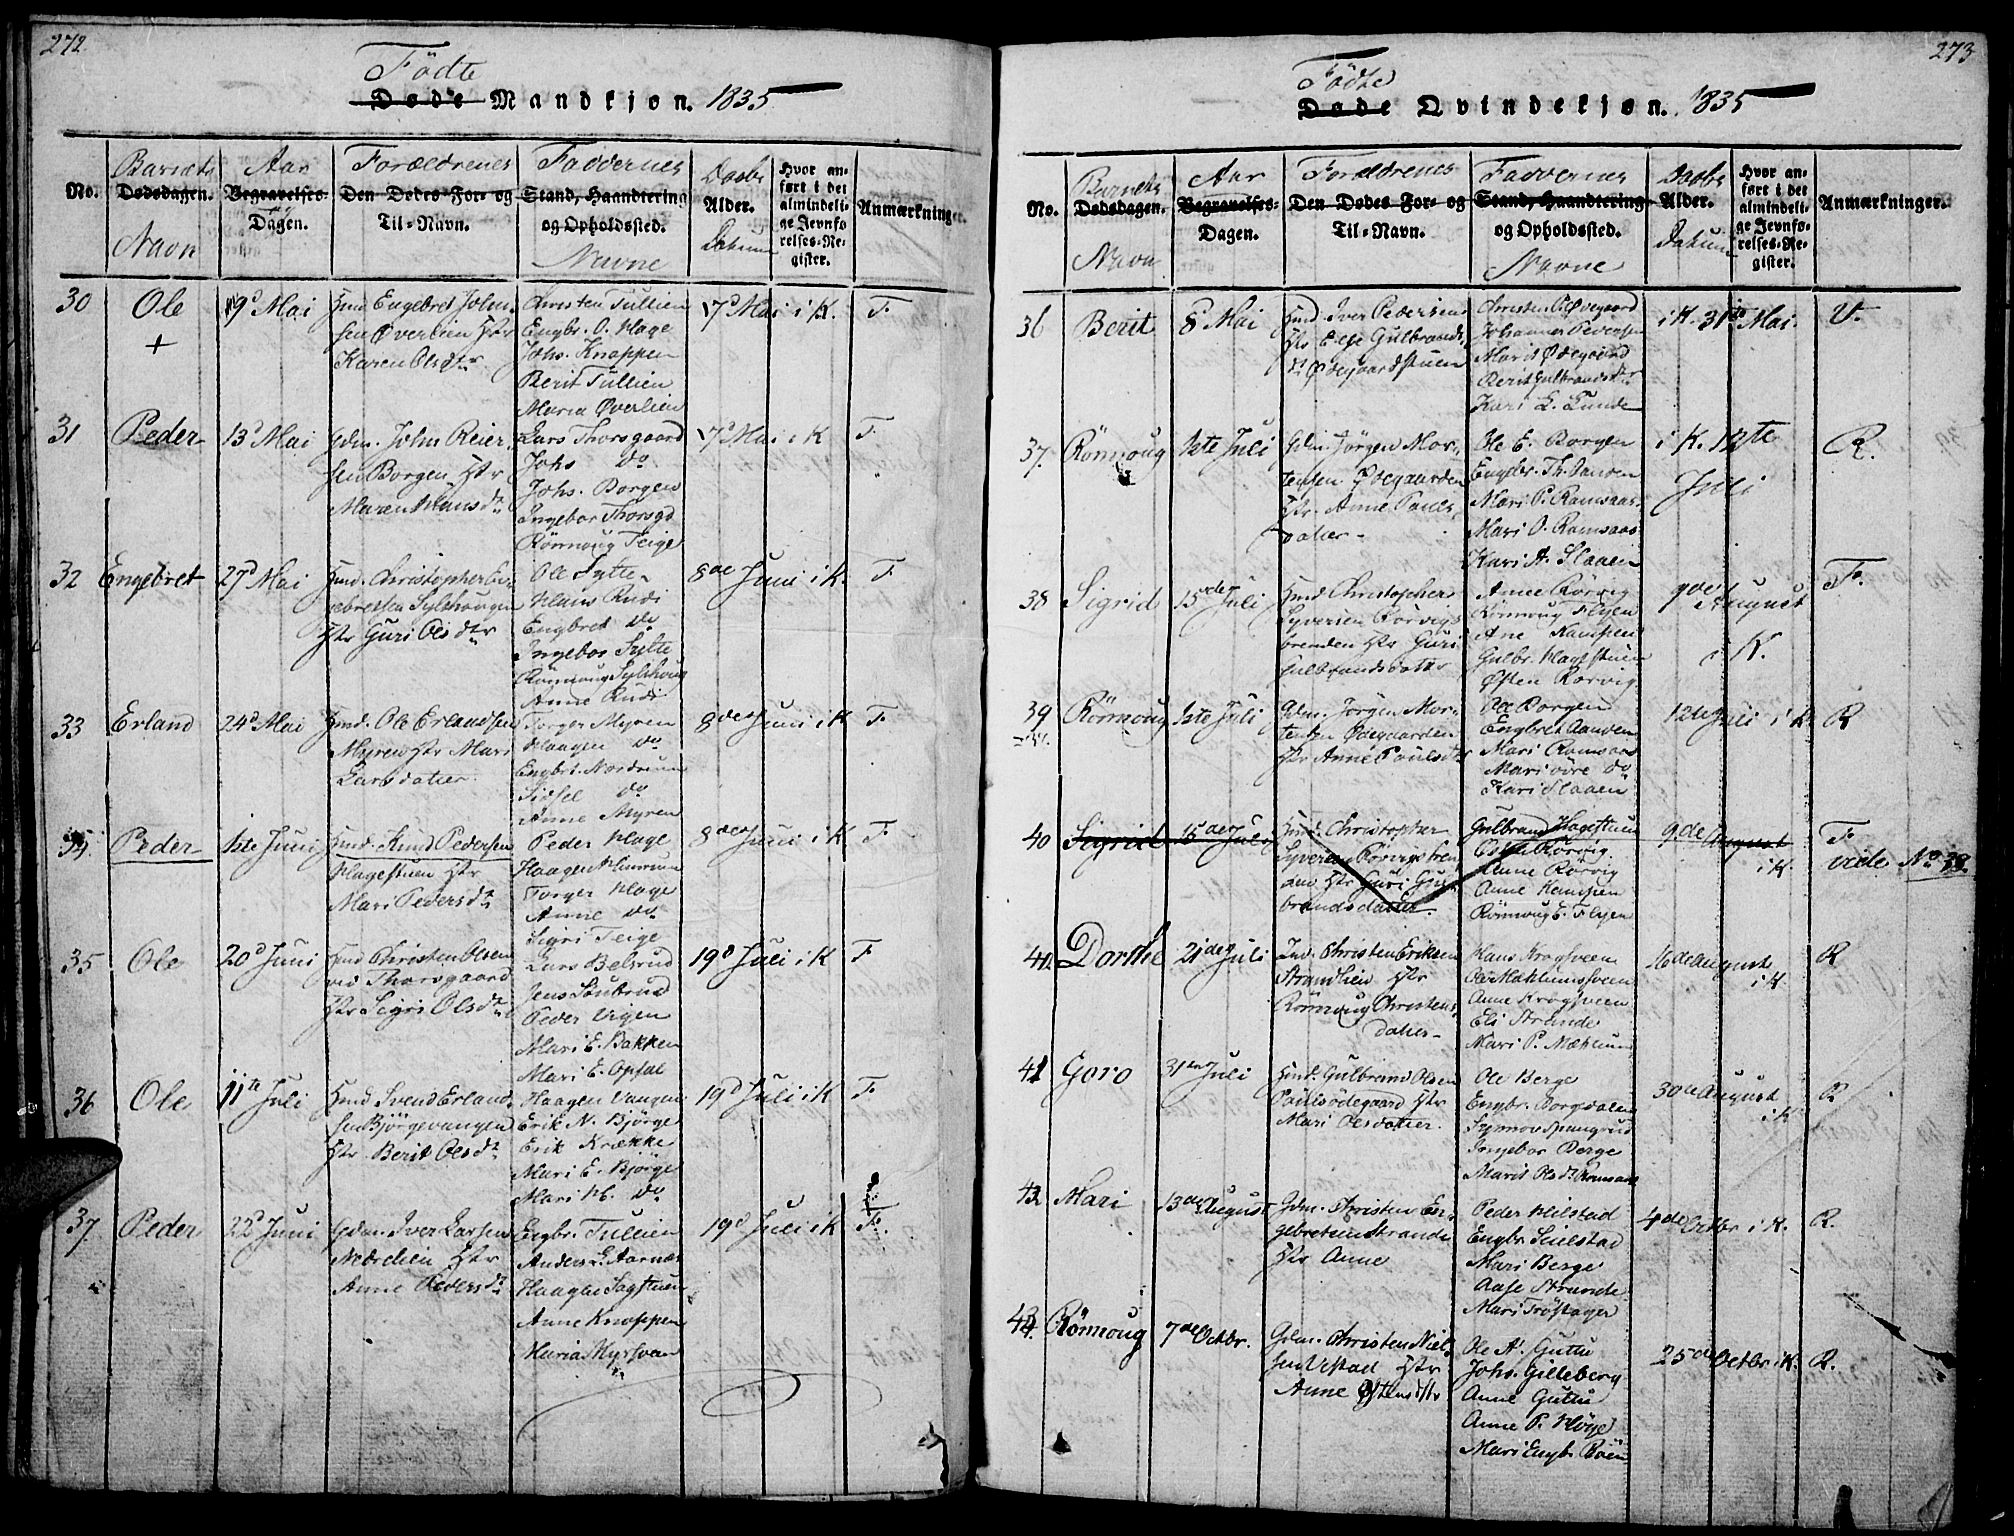 272
Födte
Døde Mandkjøn. 1835
No.
Barnets
Dødsdagen.
Navn
Aar
Begravelses-
og
Dagen.
Forældrenes
Den Dødes For- og
Til-Navn.
Faddernes
Stand, Haandtering
og Opholdssted.
Navne
Daabs
Alder.
Datum
Hvor an-
ført i det
almindeli-
ge Jevnfø-
relses-Re-
gister.
Anmærkninger.
30
Ole
+
9d Mai
Huus. Engebret John-
sen Øverlien Hstr
Karen Olsdtr
Christen Tullien
Engbr. O. Hage
Johs. Knappen
Berit Tullien
Maria Øverlien
7d Mai i K.
F.
31
Peder
13d Mai
Gdm. John Reier-
sen Borgen Hstr
Maren Hansdtr
Lars Thorsgaard
Johs do
Johs. Borgen
Ingebor Thorsgd
Rönnoug Teige
7d Mai i K
F.
32
Engebret
27d Mai
Huus. Christopher En-
gebretsen Sylthougen
Hstr Guri Olsdtr
Ole Sylte
Hans Rudi
Engbret do
Ingebor Sylte
Rönnoug Sylthoug
Anne Rudi
8de Juni i K.
F.
33
Erland
24d Mai
Huus. Ole Erlandsen
Myren Hstr Mari
Larsdatter.
Torger Myren
Haagen do
Engbrt. Nordrum
Sidsel do
Anne Myren
8de Juni i K
F.
34.
Peder
1ste Juni
Huus. Knud Pedersen
Hagestuen Hstr
Mari Pedersdtr
Peder Hage
Haagen Hunrum
Torger Hage
Anne do
Sigri Teige
8de Juni i K
F.
35
Ole
20d Juni
Huus. Christen Olsen
ved Thorsgaard
Hstr Sigri Olsdtr
Lars Belsrud
Jens Sönbrud
Peder Vigen
Mari E. Bakken
Mari E. Opsal
19d Juli i K
F
36
Ole
11te Juli
Huus Svend Erland-
sen Bjørgevangen
Hstr. Berit Olsdtr
Haagen Vangen
Erik N. Bjørge
Erik Krække
Mari E. Bjørge
Mari H. do
19d Juli i K
F.
37
Peder
22d Juni
Gdm. Iver Larsen
Nærelien Hstr
Anne Pedersdtr
Engbr. Tullien
Anders L. Aarnæs
Haagen Sagstuen
Anne Knappen
Maria Myrsvan
19d Juli i K
F.
273
Födte
Døde Qvindekjøn. 1835
No.
Barnets
Dødsdagen.
Navn
Aar
Begravelses-
Dagen.
Forældrenes
Den Dødes For- og
Til-Navn.
Faddernes
Stand, Haandtering
og Opholdssted.
Navne
Daabs
Alder.
Datum
Hvor an-
ført i det
almindeli-
ge Jevnfø-
relses-Re-
gister.
Anmærkninger.
36
Berit
8d Mai
Huus. Iver Pedersen
Hstr Else Gulbrands-
dtr Ødegaardstuen
Christen P. Ødegaard
Johannes Pedersen
Marit Ødegaard
Berit Gulbrandsdtr
Kari L. Lunde
i K. 31te Mai
V.
37.
Rönnoug
1ste Juli
Gdm. Jörgen Mor-
tensen Ødegaarden
Hstr. Anne Pouls-
datter
Ole E. Borgen
Engbr. Th. Aanden
Mari P. Ramsaas
Mari O. Ramsaas
Kari A. Slaaen
i K. 12te
Juli
R.
38
Sigrid
15de Juli
Huus. Christopher
Syversen Rörvigs
brenden Hstr Guri
Gulbrandsdatter
Anne Rörvig
Rönnoug Flyen
Ane Kampen
Gulbr. Hagestuen
Østen Rorvig
9de August
i K.
F.
39
Rönnoug
1ste Juli
Gdm. Jörgen Mor-
tensen Ødegaarden
Hstr Anne Poulsdtr
Ole Borgen
Engbret Aanden
Mari Ramsaas
Mari öore do
Kari Slaaen
12te Juli i K
R
40
Sigrid
15de Juli
Huus. Christopher
Syversen Rörvigsbren
den Hstr Guri Gul-
brandsdatter.
Gulbrand Hagestuen
Østen Rörvig
Anne Rörvig
Anne Kampen
Rönnoug E. Flyen
9de August
i K.
F.
vide No 38.
40
Dorthe
21de Juli
Ind. Christen Eriksen
Strandlien Hstr
Rönnoug Christens-
datter
Hans Krogsveen
Ole Mæhlumsveen
Anne Krogsveen
Eli Strande
Mari P. Mæhlum
16de August
i K
R
41
Goro
31te Juli
Huus. Gulbrand Olsen
Poulsödegaard Hstr
Mari Olsdatter.
Ole Berge
Engbr. Borgedalen
Symon Spangrud
Ingebor Berge
Marit Olsdtr Ramsaas
30te August
i K
R
42
Mari
13de August
Gdm. Christen En-
gebretsen Strande
Hstr Anne
Peder Heilstad
Engbr. Seilstad
Mari Berge
Aase Strande
Mari Tröstager
4de Octbr i K.
R.
43
Rönnoug
7de Octbr.
Gdm. Christen Niel-
sen Vestad Hstr
Anne Østensdtr
Ole A. Guttu
Johs. Gilleberg
Anne Guttu
Anne P. Höye
Mari Engbr. Böen
25de Octbr i K.
R.